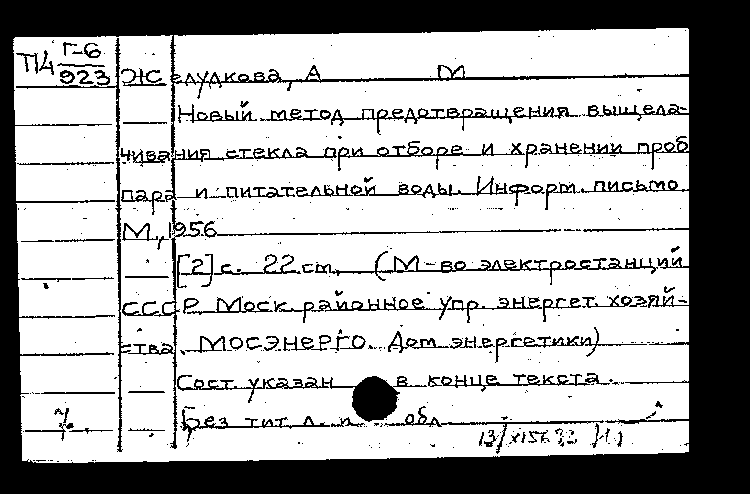 П4 Г-6
923 Желудкова, А М
Новый метод предотвращения выщела-
чивания стекла при отборе и хранении проб
пара и питательной воды. Информ. письмо.
М., 1956
[2] с. 22 см. (М-во электростанций
СССР. Моск. районное упр. энергет. хозяй-
ства. МОСЭНЕРГО. Дом энергетики)
Сост. указан в конце текста.
Без тит. л. и обл.